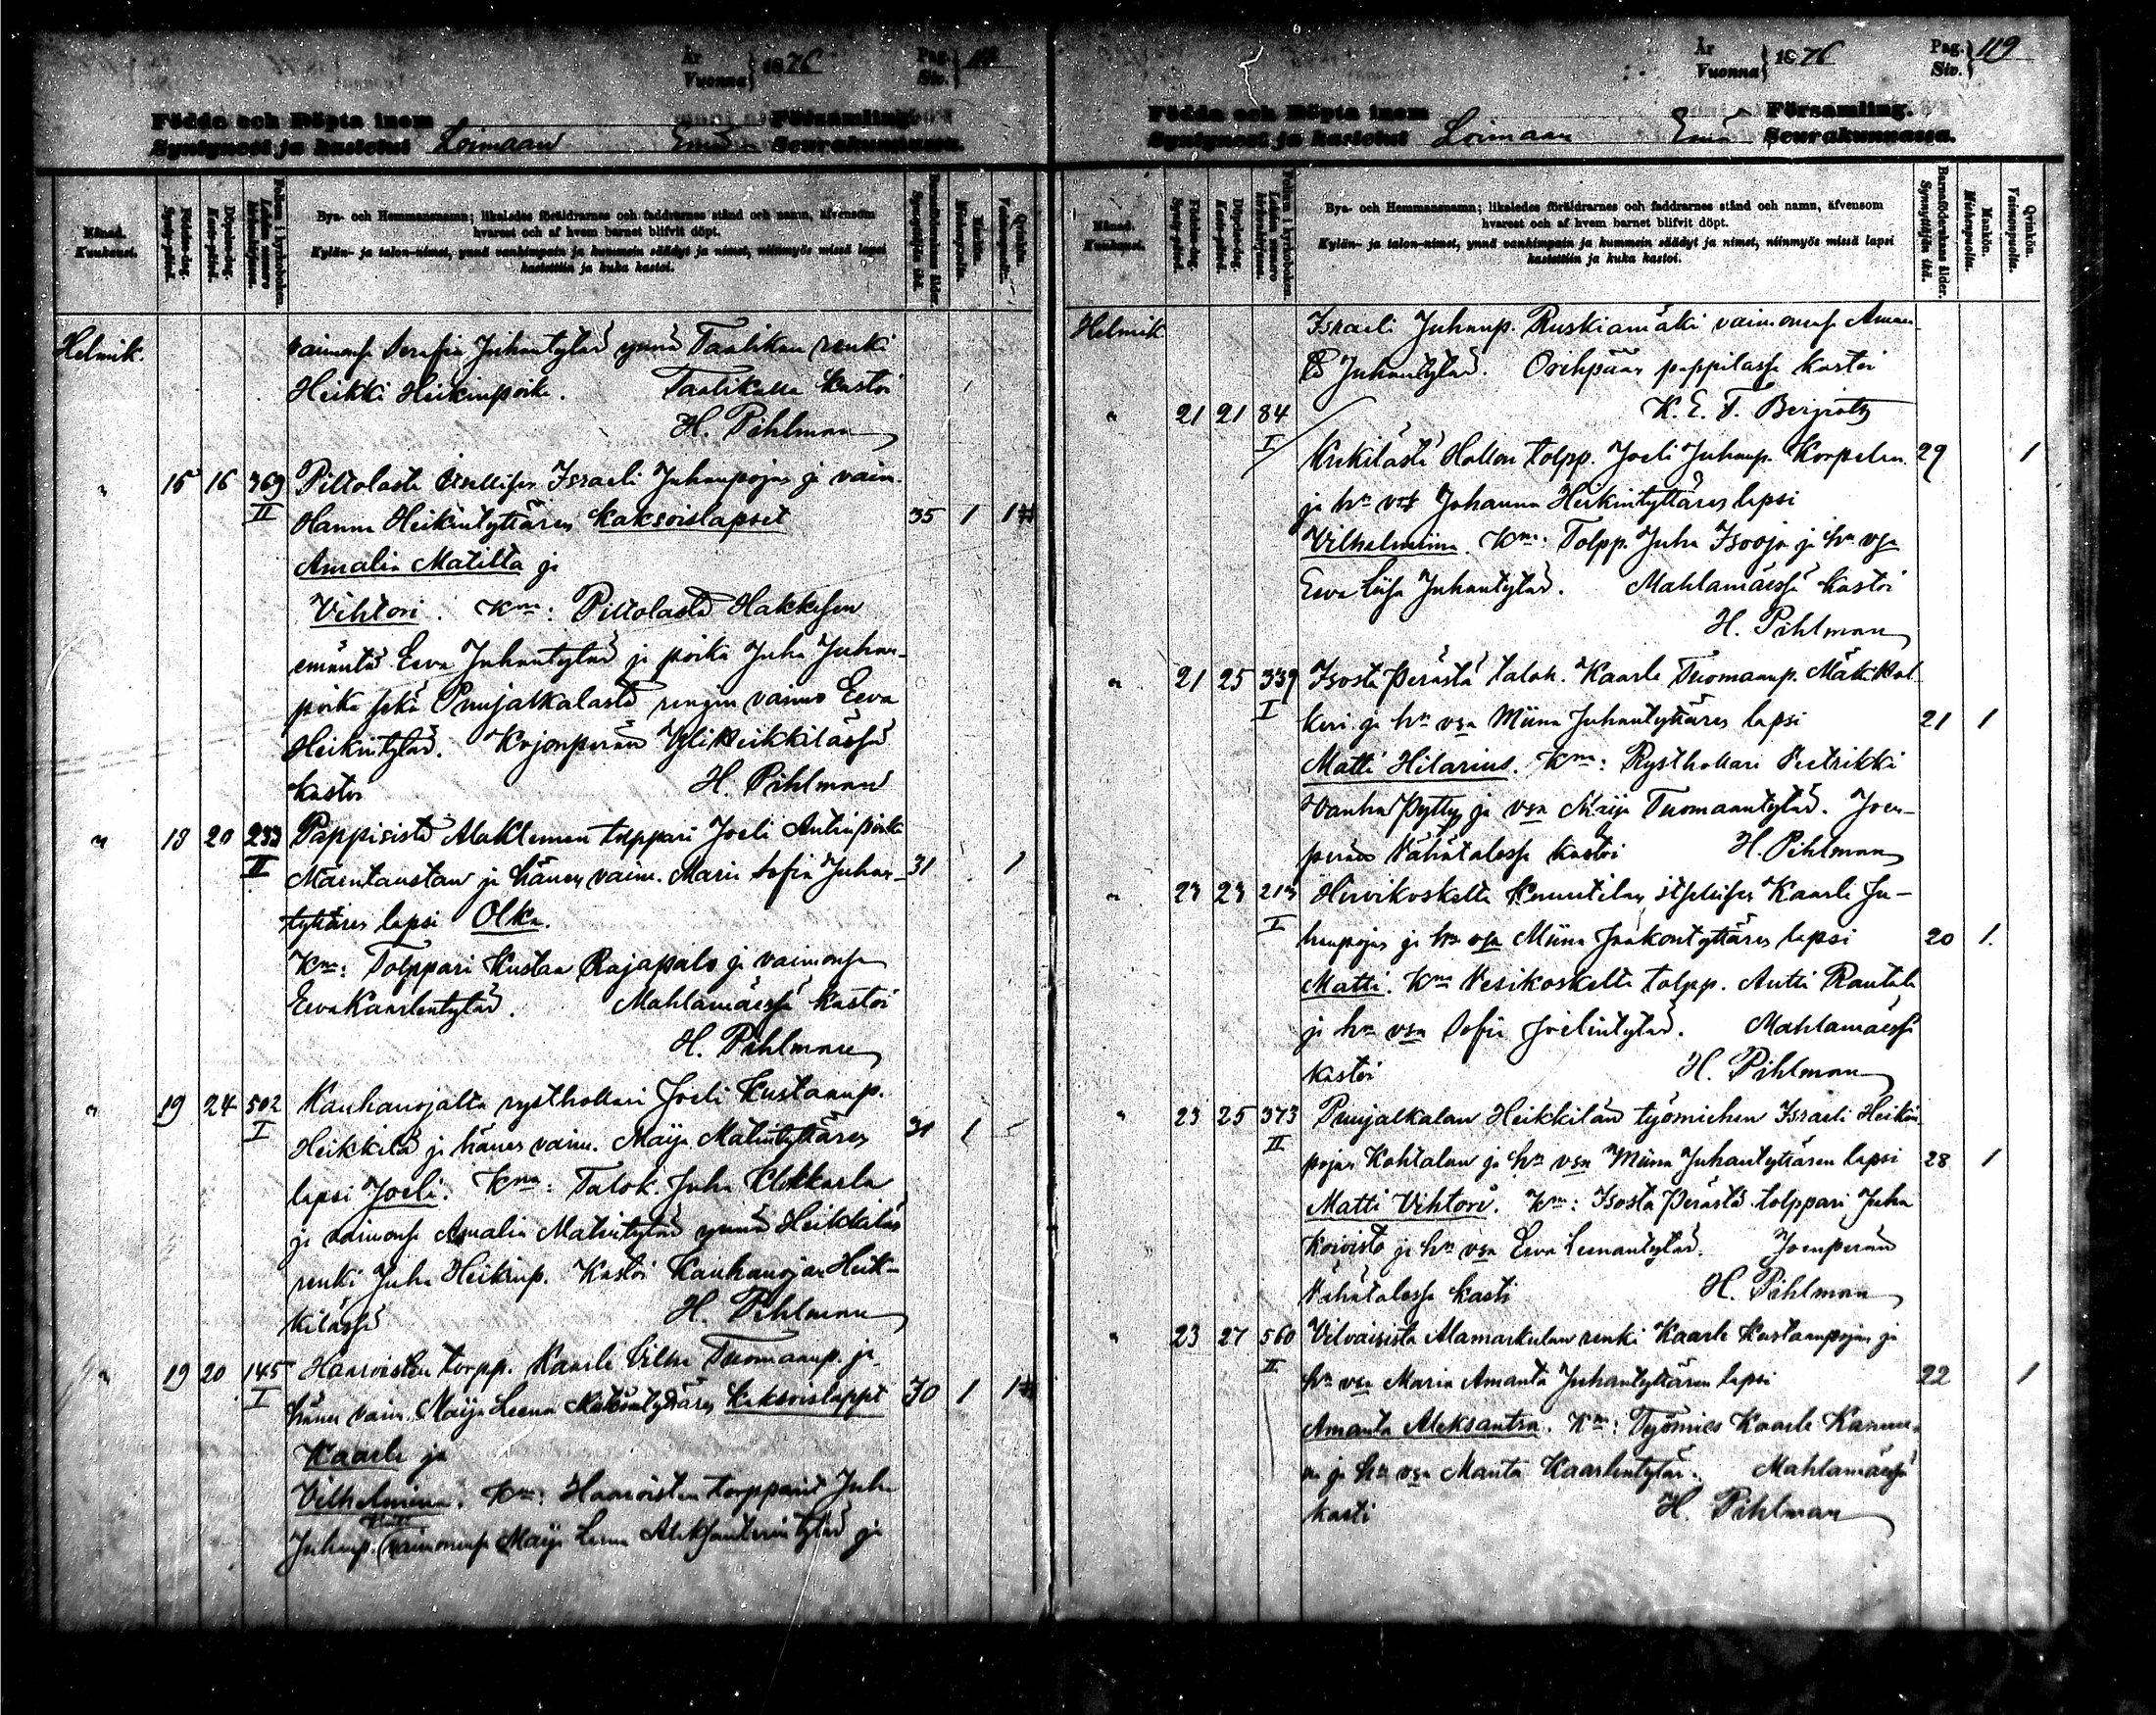 År
Vuonna } 1876
Pag.
Siv. } 118
Födda och Döpta inom Församling.
Syntyneet ja kastetut Loimaan Emä Seurakunnassa.
Månad.
Kuukausi.
Födelse-dag.
Synty-päivä.
Döpelse-dag.
Kaste-päivä.
Folium i kyrkoboken.
Lehden numero kirkonkirjassa.
Bya- och Hemmansnamn; likaledes föräldrarnes och faddrarnes stånd och namn, äfvensom
hvarest och af hvem barnet blifvit döpt.
Kylän- ja talon-nimet, ynnä vanhimpain ja kummein säädyt ja nimet, niinmyös missä lapsi
kastettiin ja kuka kastoi.
Barnaföderskans ålder.
Synnyttäjän ikä.
Mankön.
Miehenpuolia.
Qvinkön.
Vaimonpuolia.
Helmik. vaimonsa Serafia Juhantytär ynnä Taatikan renki
Heikki Heikinpoika. Taatikalla kastoi
H. Pihlman
" 15 16 369 Piltolasta Israeli Juhanpojan ja vaim.
II Hanna Heikintyttären kaksoislapset 35 1 1
Amalia Matilta ja
Vihtori. Km: Piltolasta Hakkisen
emäntä Eeva Juhantytär ja poika Juha Juhan-
poika sekä Puujalkalasta rengin vaimo Eeva
Heikintytär. Kojonperän Ylikeikkilässä
kastoi H. Pihlman
" 18 20 233 Pappisista Alaklemen torppari Joeli Antinpoika
II Mäentaustan ja hänen vaim. Maria Sofia Juhan- 31 1
tyttären lapsi Olka.
Km: Torppari Kustaa Rajapalo ja vaimonsa
Eeva Kaarlentytär. Mahlamäessä kastoi
H. Pihlman
" 19 24 502 Kauhanojalta rysthollari Joeli Kustaanp.
I Heikkilä ja hänen vaim. Maija Matintyttären 31 1
lapsi Joeli. Km: Talok. Juha Klokkarla
ja vaimonsa Amalia Matintytär ynnä Heikkilän
renki Juha Heikinp. Kastoi Kauhanojan Heik-
kilässä H. Pihlman
" 19 20 145 Haaroisten torpp. Kaarle Vilhe Tuomaanp. ja
I hänen vaim. Maija Leena Matintyttären kaksoislapset 30 1 1
Kaarle ja
Vilhelmina. Km: Haaroisten torpparit Juha
Juhanp. vaimonensa Maija Leena Aleksanterintytär ja
År
Vuonna } 1876
Pag.
Siv. } 119
Födda och Döpta inom Församling.
Syntyneet ja kastetut Loimaan Emä Seurakunnassa.
Månad.
Kuukausi.
Födelse-dag.
Synty-päivä.
Döpelse-dag.
Kaste-päivä.
Folium i kyrkoboken.
Lehden numero kirkonkirjassa.
Bya- och Hemmansnamn; likaledes föräldrarnes och faddrarnes stånd och namn, äfvensom
hvarest och af hvem barnet blifvit döpt.
Kylän- ja talon-nimet, ynnä vanhimpain ja kummein säädyt ja nimet, niinmyös missä lapsi
kastettiin ja kuka kastoi.
Barnaföderskans ålder.
Synnyttäjän ikä.
Mankön.
Miehenpuolia.
Qvinkön.
Vaimonpuolia.
Helmik. Israeli Juhanp. Ruskiamäki vaimonensa Aman-
Juhantytär. Orihpään pappilassa kastoi
" 21 21 84 K. E. F. Bergroth
I Krekilästä Hollon torpp. Joeli Juhanp. Korpelan 29 1
ja hn vsa Johanna Heikintyttären lapsi
Vilhelmiina. Km: Torpp. Juha Isooja ja hn vsa
Eeva Liisa Juhantytär. Mahlamäessä kastoi
H. Pihlman
" 21 25 339 Isosta Perästä talok. Kaarle Tuomaanp. Mäkikal-
I keri ja hn vsa Miina Juhantyttären lapsi 21 1
Matti Hilarius. Km: Rysthollari Fretrikki
Vanha Pytty ja vsa Maija Tuomaantytär. Joen-
perän Vähätalossa kastoi H. Pihlman
" 23 23 213 Hirvikoskelta Knuutilan itsellisen Kaarle Ju-
I hanpojan ja hn vsa Miina Jaakontyttären lapsi 20 1.
Matti. Km Vesikoskelta torpp. Antti Rautala
ja hn vsa Sofia Joelintytär. Mahlamäessä
kastoi H. Pihlman
" 23 25 373 Puujalkalan Heikkilän työmiehen Israeli Heikin-
II pojan Kohtalan ja hn vsa Miina Juhantyttären lapsi 28 1
Matti Vihtori. Km: Isosta Perästä torppari Juha
Koivisto ja hn vsa Eeva Leenantytär. Joenperän
Vähätalossa kasti H. Pihlman
" 23 27 560 Vilvaisista Alamarkulan renki Kaarle Kustaanpojan ja
II hn vsa Maria Amanta Juhantyttären lapsi 22 1
Amanta Aleksantra. Km: Työmies Kaarle
ja hn vsa Manta Kaarlentytär. Mahlamäessä
kasti H. Pihlman